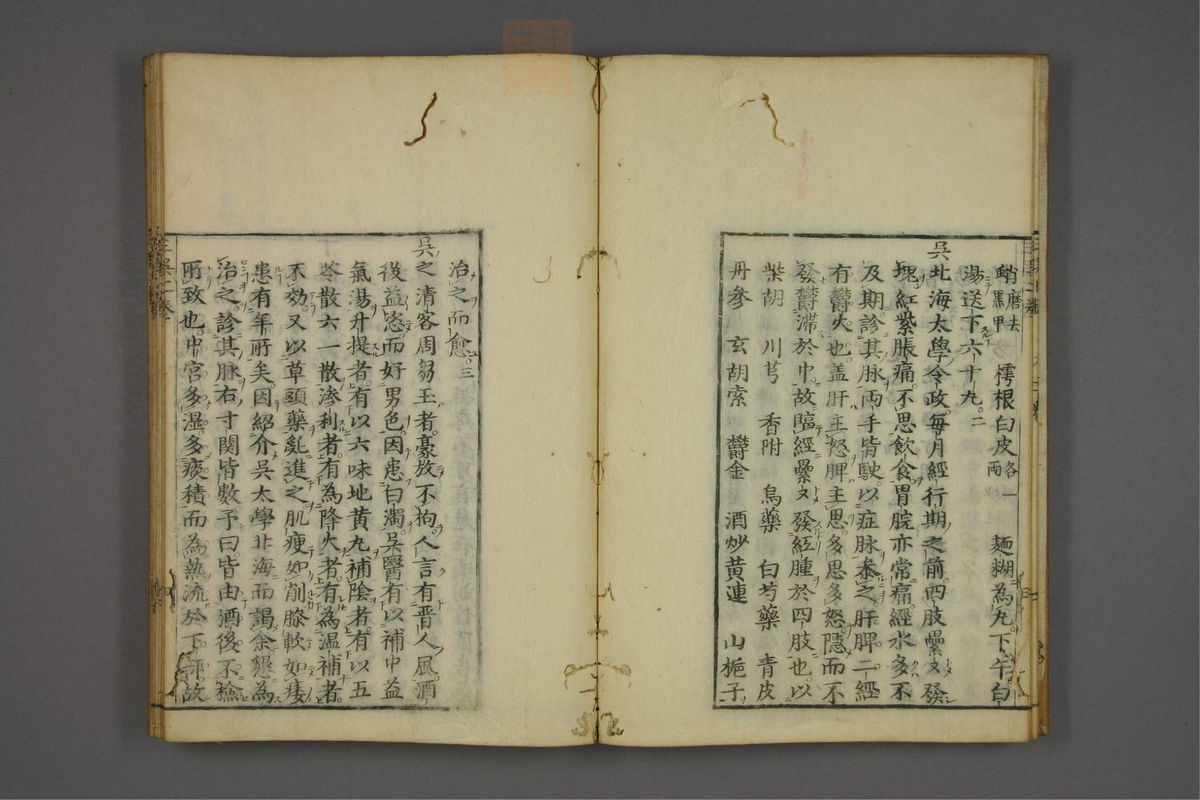 蛸磨去
邸黒甲 樗根白皮各一兩 麺糊為丸下午白
湯送下六十丸二
吳北海太學令政每月經行期之前四肢疊々發
塊紅紫脹痛不思飲食胃脘亦常痛經水多不
及期診其脉両手皆駛以症脉叅之肝脾二經
有欝火也盖肝主怒脾主思多思多怒隱而不
發欝滞於中故臨經疊々發紅腫於四肢也以
柴胡 川芎 香附 烏藥 白芍藥 青皮
丹參 玄胡索 欝金 酒炒黄連 山梔子
治之而愈三
吳之清客周芻玉者豪放不拘人言有晋人風酒
後益恣而好男色因患白濁吳醫有以補中益
氣湯升提者有以六味地黄丸補陰者有以五
苓散六一散滲利者有為降火者有為温補者
不効又以草頭藥亂進之肌瘦如削膝軟如痿
患有年所矣因紹介吳太學北海而謁余懇為
治之診其脉右寸関皆數予曰皆由酒後不檢
所致也中宮多湿多痰積而為熱流於下部故